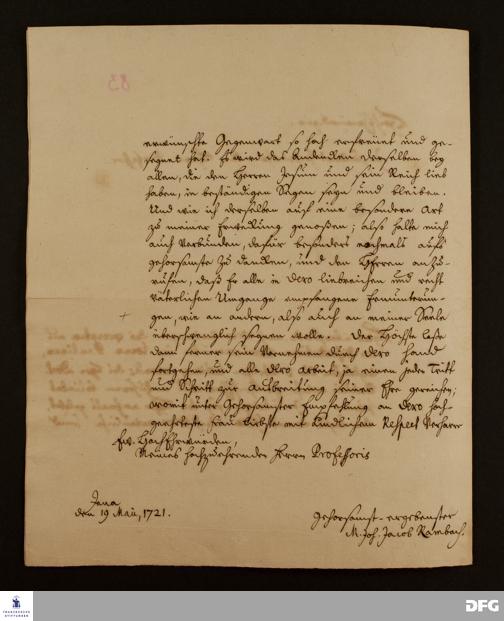 83
erwünschte Gegenwart so hoch erfreuet und ge-
segnet hat. Es wird das Andencken derselben bey
allen, die den Herren Jesum und sein Reich lieb
haben, in beständigem Segen seyn und bleiben.
Und wie ich derselben auf eine besondere Art
zu meiner Erweckung genoßen; also halte mich
auch verbunden, dafür besonders nochmals aufs
gehorsamste zu dancken, und den Herren anzu-
rufen, daß Er alle in Dero liebreichen und recht
väterlichen Umgange empfangene Ermunterun-
gen, wie an andern, also auch an meiner Seele
überschwenglich segnen wolle. Der Höchste laße
dann ferner sein Vornehmen durch Dero Hand
fortgehen, und alle Dero Arbeit, ja einen jeden Tritt
und Schritt zur Ausbreitung seiner Ehre gereichen;
womit unter gehorsamster Empfehlung an Dero hoch-
geehrteste Frau Liebste mit kindlichem Respect verharre
Ew. HochEhrwürden,
Meines hochzuehrenden Herrn Professoris
Jena
den 19 Maii, 1721.
gehorsamst-ergebenster
M. Joh. Jacob Rambach.
FRANCKESCHE
STIFTUNGEN
DFG